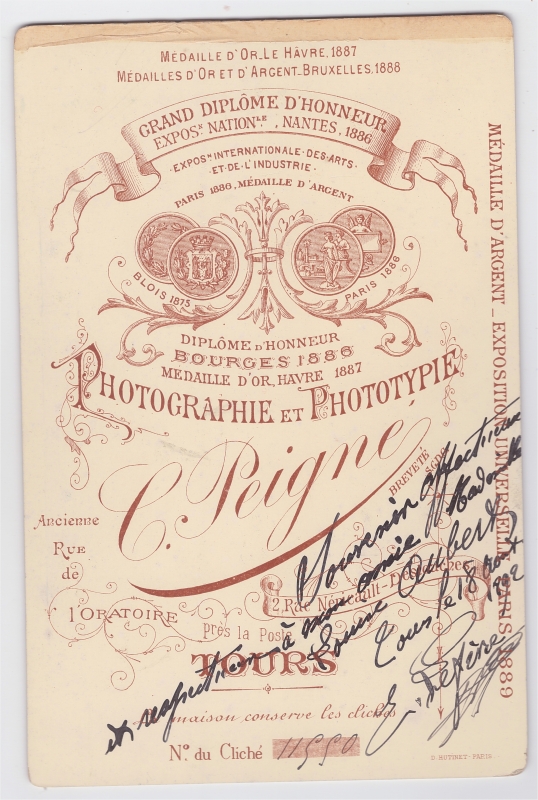 MÉDAILLE D'OR_LE HÂVRE, 1887
MÉDAILLES D'OR ET D'ARGENT_BRUXELLES, 1888
GRAND DIPLÔME D'HONNEUR
EXPOS.ᴺ NATION.ᴸᴱ, NANTES, 1886
EXPOSᴺ INTERNATIONALE·DES·ARTS
·ET·DE·L'INDUSTRIE·
PARIS 1886, MÉDAILLE D'ARGENT
BLOIS 1875
PARIS 1886
DIPLÔME D'HONNEUR
BOURGES 1886
MÉDAILLE D'OR, HAVRE 1887
PHOTOGRAPHIE ET PHOTOTYPIE
C. Peigné
BREVETÉ S.G.D.G.
MÉDAILLE D'ARGENT_EXPOSITION UNIVERSELLE PARIS 1889
Ancienne
RUE
de
L'ORATOIRE
2, Rue Néricault-Destouches
Près la Poste
TOURS
La maison conserve les clichés
Nº du Cliché 11550
D. HUTINET·PARIS
Souvenir affectueux
et respectueux à mon amie Mademelle
Louise Aubert
Tours le 18 août
1892
E. Lefève